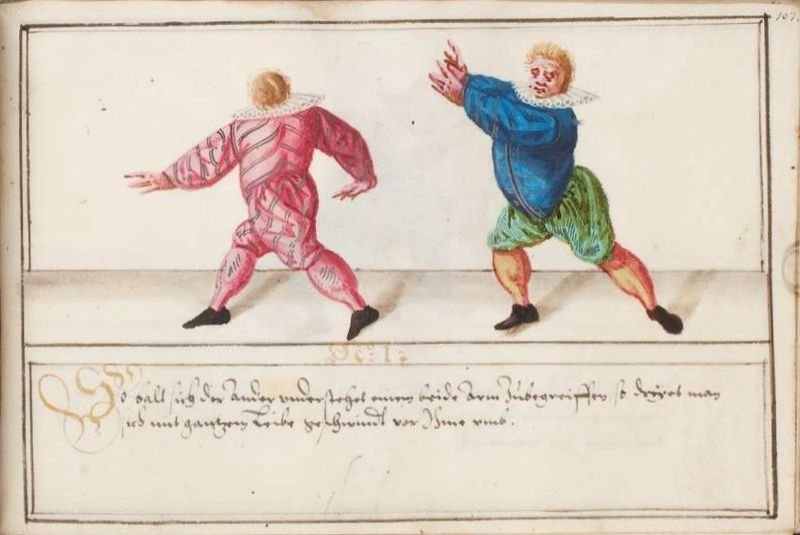 107.
So balt sich der Ander vnderstehet einem beide Arm Zubegreiffen so drehet man
sich mit gantzem Leibe geschwindt vor Ihme vmb.